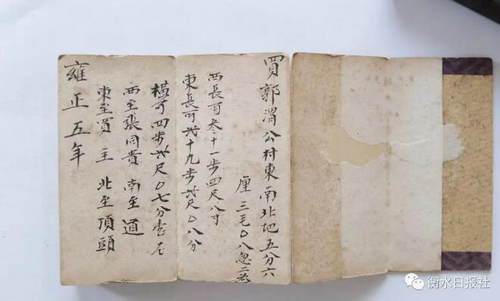 賈郭渭公村東南北地五分六
厘三毛〇八忽二
西長可叁十一步四尺八寸
東長可十九步尺〇八分
橫可四步尺〇七分
西至張同貴 南至道
東至買主 北至頂頭
雍正五年
衡水日报社